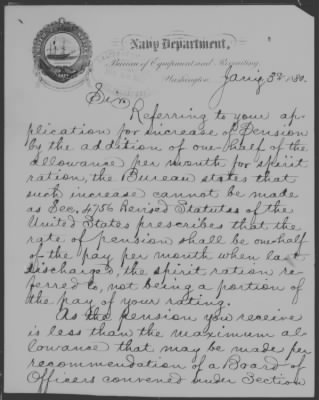 Navy Department,
Bureau of Equipment and Recruiting,
Washington, Jan'y 3d 1880.
Sir
Referring to your ap-
plication for increase of Pension
by the addition of one-half of the
allowance per month for spirit
ration, the Bureau states that
such increase cannot be made
as Sec. 4756 Revised Statutes of the
United States prescribes that the
rate of pension shall be one-half
of the pay per month when last
discharged, the spirit ration re-
ferred to, not being a portion of
the pay of your rating.
As the pension you receive
is less than the maximum al-
lowance that may be made per
recommendation of a Board of
Officers convened under Section